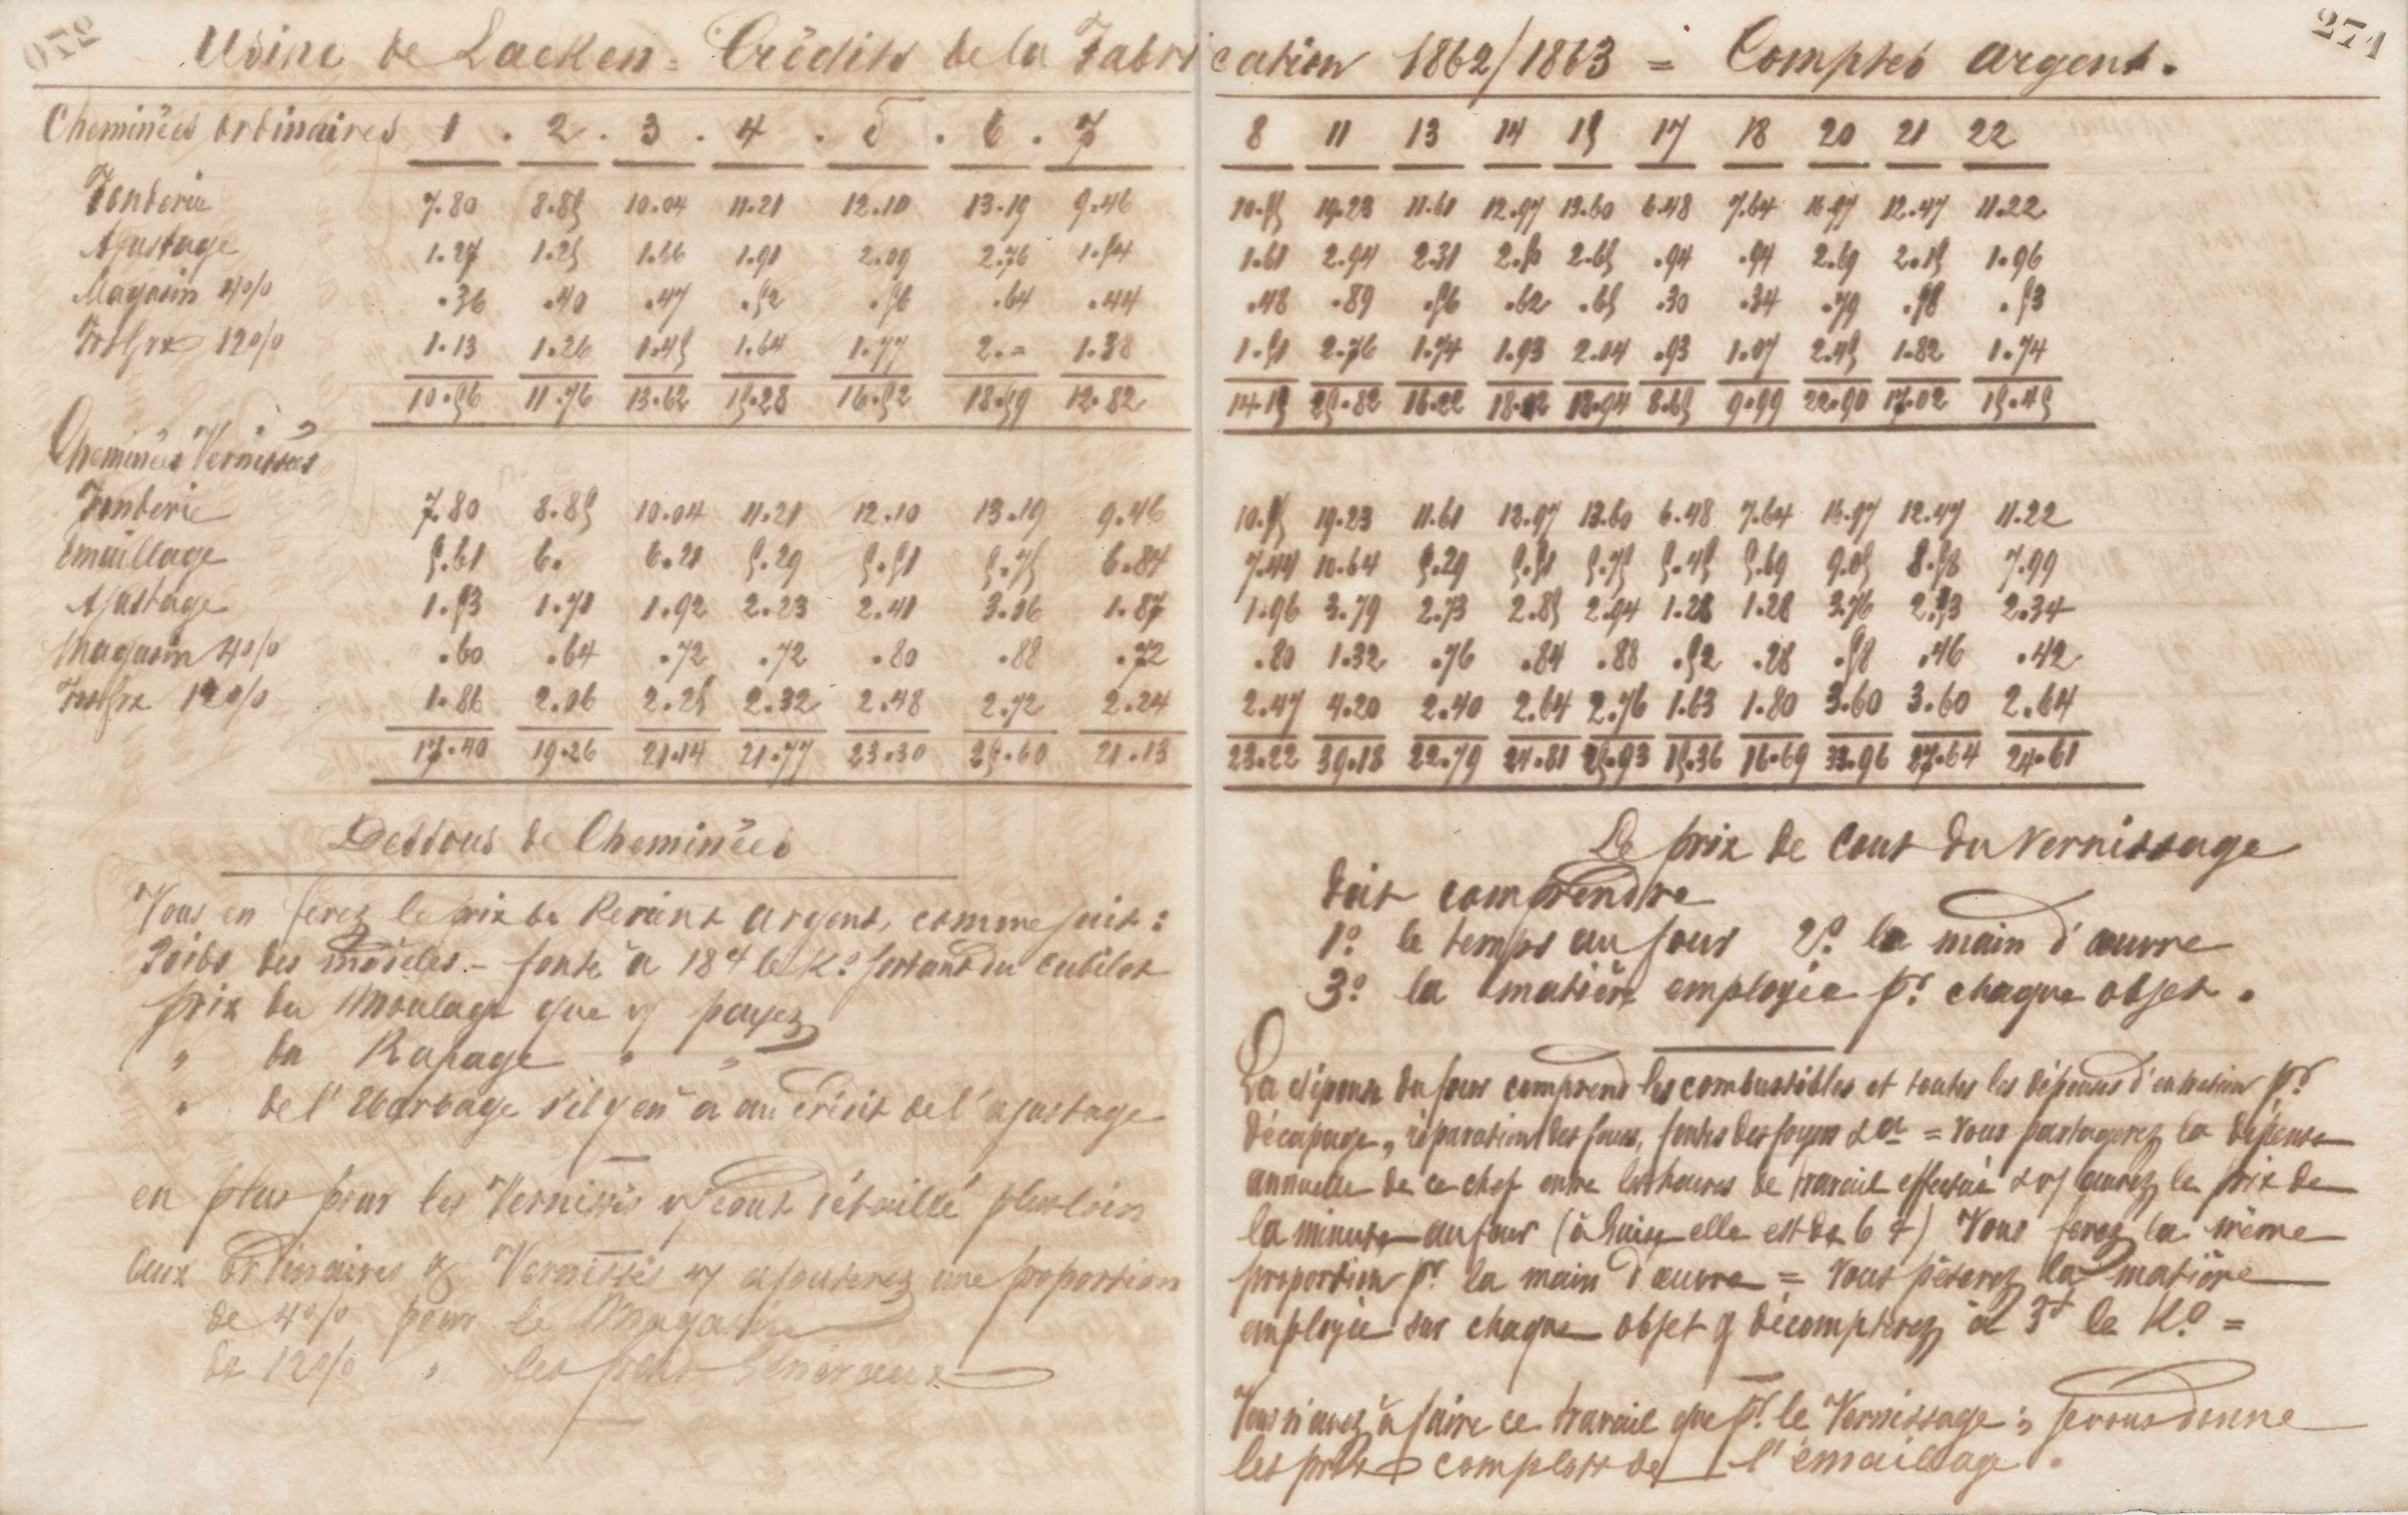 270
271
Usine de Laeken = Crédits de la Fabrication 1862/1863 = Comptes argent.
Cheminées Ordinaires 1 . 2 . 3 . 4 . 5 . 6 . 7 8 11 13 14 15 17 18 20 21 22
Fonderie 7.80 8.85 10.04 11.21 12.10 13.19 9.46 10.55 19.23 11.61 12.97 13.60 6.48 7.64 16.97 12.47 11.22
Ajustage 1.27 1.25 1.66 1.91 2.09 2.76 1.54 1.61 2.94 2.31 2.50 2.65 .94 .94 2.69 2.15 1.96
Magasin 4% .36 .40 .47 .52 .56 .64 .44 .48 .89 .56 .62 .65 .30 .34 .79 .58 .53
12% 1.13 1.26 1.45 1.64 1.77 2.= 1.38 1.51 2.76 1.74 1.93 2.04 .93 1.07 2.45 1.82 1.74
10.56 11.76 13.62 15.28 16.52 18.59 12.82 14.15 25.82 16.22 18.02 18.94 8.65 9.99 22.90 17.02 15.45
Cheminées Vernissées
Fonderie 7.80 8.85 10.04 11.21 12.10 13.19 9.46 10.55 19.23 11.61 12.97 13.60 6.48 7.64 16.97 12.47 11.22
Emaillage 5.61 6. 6.21 5.29 5.51 5.75 6.84 7.44 10.64 5.29 5.51 5.75 5.45 5.69 9.05 8.58 7.99
Ajustage 1.53 1.71 1.92 2.23 2.41 3.06 1.87 1.96 3.79 2.73 2.85 2.94 1.28 1.28 3.76 2.53 2.34
Magasin 4% .60 .64 .72 .72 .80 .88 .72 .80 1.32 .76 .84 .88 .52 .28 .58 .46 .42
12% 1.86 2.06 2.25 2.32 2.48 2.72 2.24 2.47 4.20 2.40 2.64 2.76 1.63 1.80 3.60 3.60 2.64
17.40 19.26 21.14 21.77 23.30 25.60 21.13 23.22 39.18 22.79 24.81 25.93 15.36 16.69 33.96 27.64 24.61
Dessous de Cheminées
Vous en ferez le prix de Revient argent, comme suit :
Poids des modèles. - fonte à 18 le K.º sortant du cubilot
prix du Moulage que v/ payez
" du Rapage " "
" de l'Ebarbage s'il y en a au crédit de l'ajustage
en plus pour les Vernissés v/ cout détaillé plus loin
aux Ordinaires & Vernissés v/ ajouterez une proportion
de 4% pour le Magasin
de 12% " les frais Généraux
Le prix de Cout du Vernissage
doit comprendre
1º le temps au four 2º la main d'œuvre
3º la matière employée pr chaque objet .
La dépense du four comprend les combustibles et toutes les dépenses d'entretien pr
décapage, réparations des fours, fontes des foyers &a = Vous partagerez la dépense
annuelle de ce chef entre les heures de travail effectué & v/ aurez le prix de
la minute au four (à Guise elle est de 6 ) Vous ferez la même
proportion pr la main d'œuvre = Vous pèserez la matière
employée sur chaque objet & décompterez à 3f le K.º =
Vous n'avez à faire ce travail que pr le Vernissage ; je vous donne
les prix complets de l'émaillage .